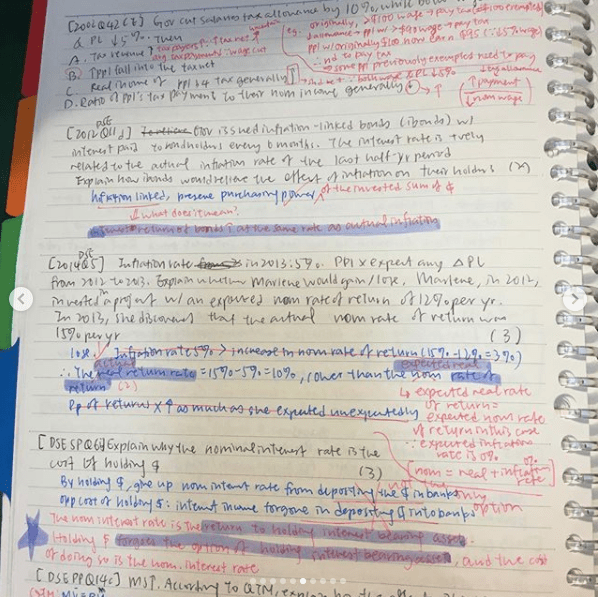 [2006 Q42 CE] Gov cut salaries tax allowance by 10%, while both
& PL ↓ 5%. Then
A. Tax revenue ↑
B. ↑ppl fall into the tax net
C. Real income of ppl b4 tax generally ↓
D. Ratio of ppl's tax payment to their nom income generally ↓
originally, > $100 wage → pay tax
→ pay tax
ppl w/ originally $100 now earn $95
∴ no to pay tax
∴ some ppl previously exempted need to pay
↑ payment
↓ nom wage
DSE
[2012 Q11d] Gov issued inflation-linked bonds (ibonds) w/
interest paid to bondholders every 6 months. The interest rate is +vely
related to the actual inflation rate of the last half-yr period
Explain how ibonds would relieve the effect of inflation on their holders (2)
Inflation linked, preserve purchasing power of the invested sum of $
↓ what does it mean?
return of bonds ↑ at the same rate as actual inflation
DSE
[2014 Q5] Inflation rate in 2013: 5%. Ppl x expect any ΔPL
from 2012 to 2013. Explain whether Marlene would gain/lose. Marlene, in 2012,
invested in a project w/ an expected nom rate of return of 12% per yr.
In 2013, she discovered that the actual nom rate of return was
15% per yr
(3)
lose. Inflation rate 5% > increase in nom rate of return (15% - 12% = 3%)
∴ The actual real return rate = 15% - 5% = 10%, lower than the expected real nom rate of
return (2)
Pp of returns x ↑ as much as she expected unexpectedly
↳ expected real rate
of return =
expected nom rate
of return in this case
∵ expected inflation
rate is 0%
0%
(nom = real + inflation
rate)
[DSE SP Q6] Explain why the nominal interest rate is the
cost of holding $
(3)
By holding $, give up nom interest rate from depositing the $ in banks
opp cost of holding $: interest income forgone in depositing $ into banks
not the only
option
The nom interest rate is the return to holding interest bearing assets.
Holding $ forgoes the option of holding interest bearing assets, and the cost
of doing so is the nom. interest rate
[DSE PP Q14c] MSP. According to QTM,